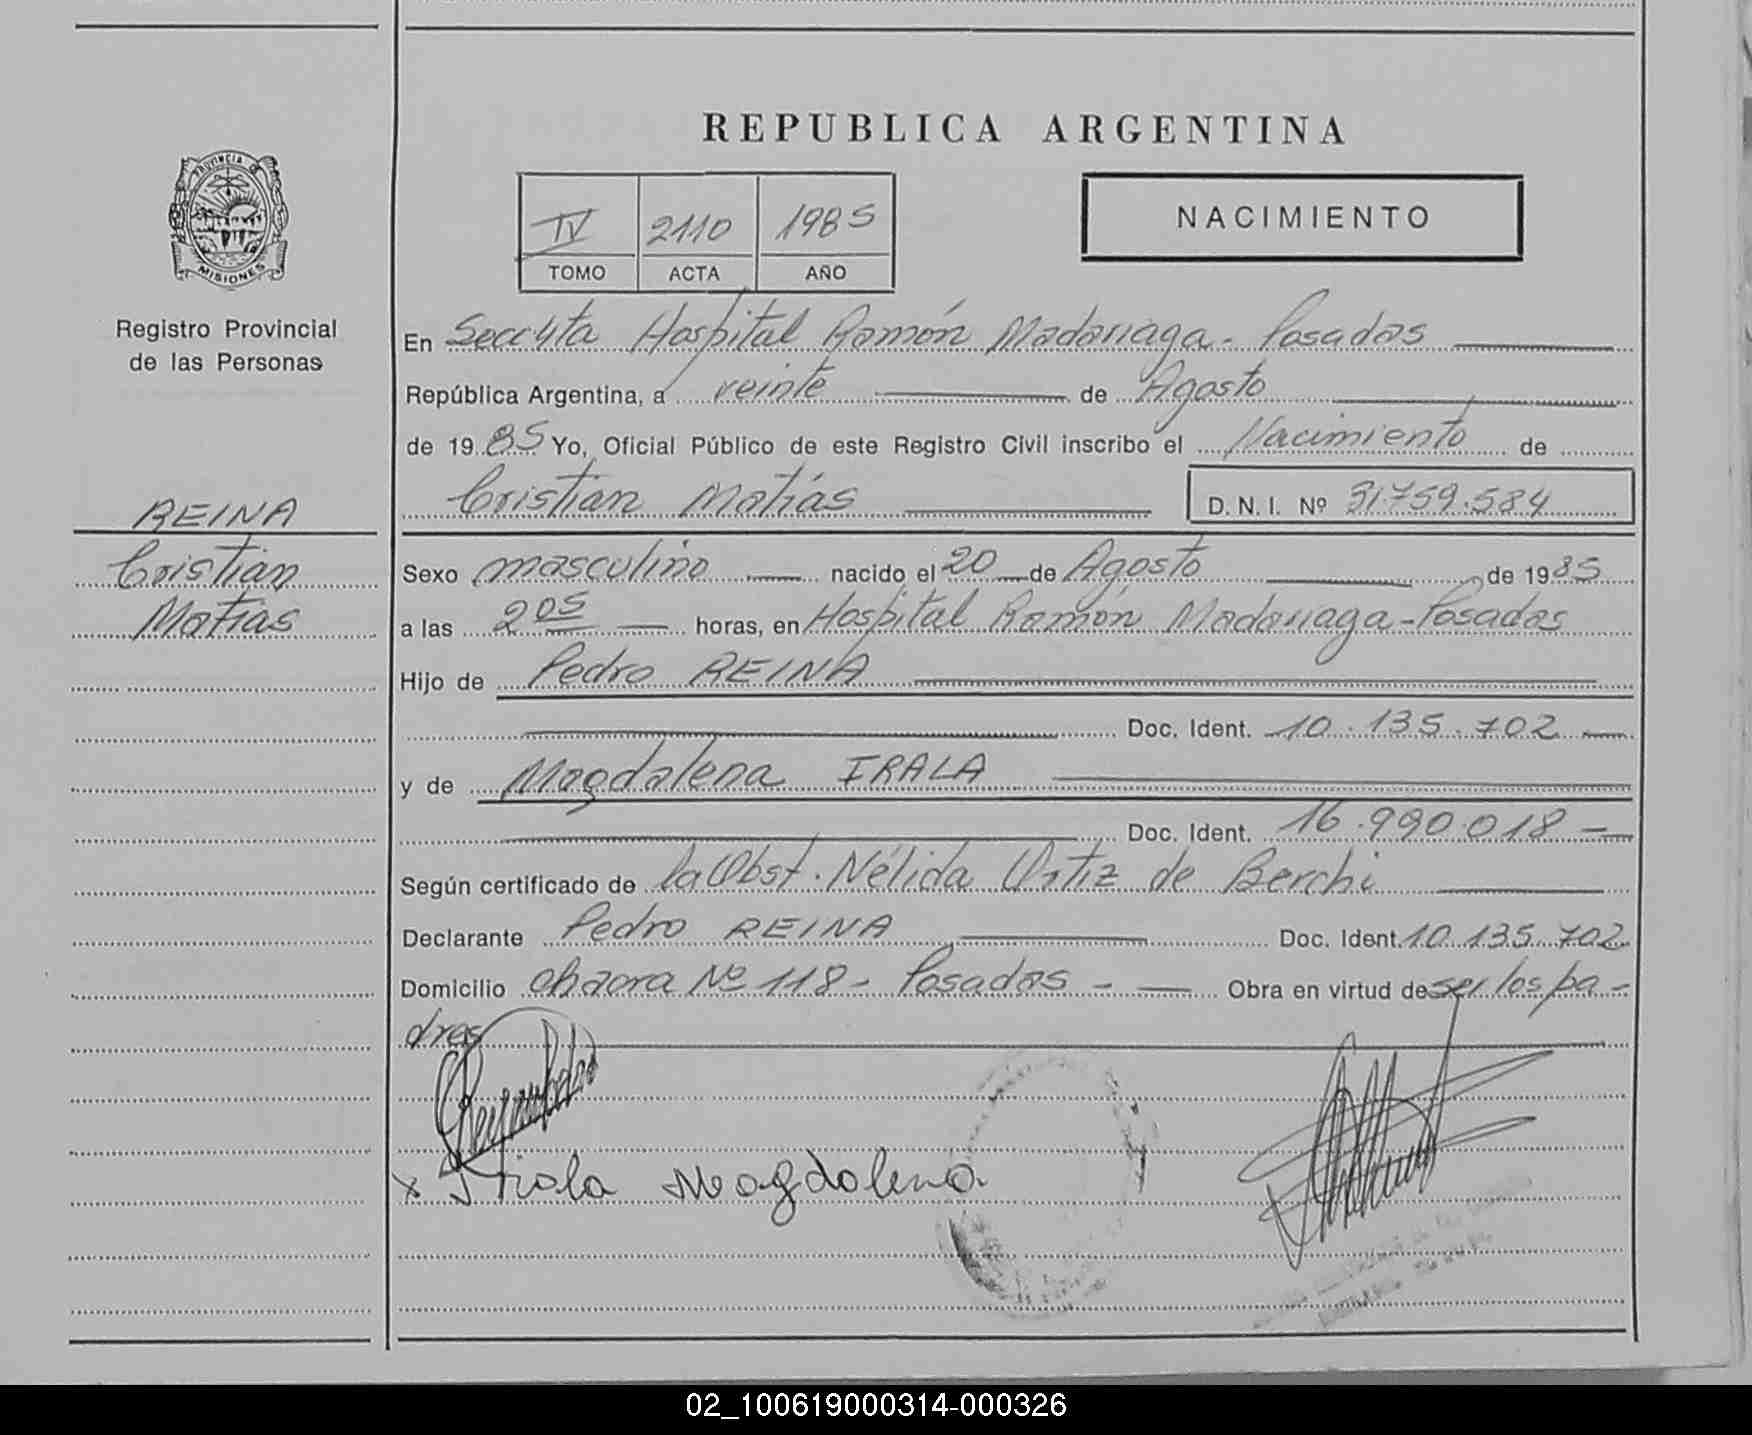 REPUBLICA ARGENTINA
PROVINCIA DE
MISIONES
IV 2110 1985
TOMO ACTA AÑO
NACIMIENTO
Registro Provincial
de las Personas
REINA
Cristian
Matías
En Secc 4ta Hospital Ramón Madariaga - Posadas
República Argentina, a veinte de Agosto
de 1985 Yo, Oficial Público de este Registro Civil inscribo el Nacimiento de
Cristian Matías D.N.I. Nº 31.759.584
Sexo masculino nacido el 20 de Agosto de 1985
a las 2 05 horas, en Hospital Ramón Madariaga - Posadas
Hijo de Pedro REINA
Doc. Ident. 10.135.702
y de Magdalena IRALA
Doc. Ident. 16.990.018
Según certificado de la Obst. Nélida Ortiz de Berchi
Declarante Pedro REINA Doc. Ident. 10.135.702
Domicilio chacra Nº 118 - Posadas - Obra en virtud de ser los pa-
dres
x Irala Magdalena
02_100619000314-000326